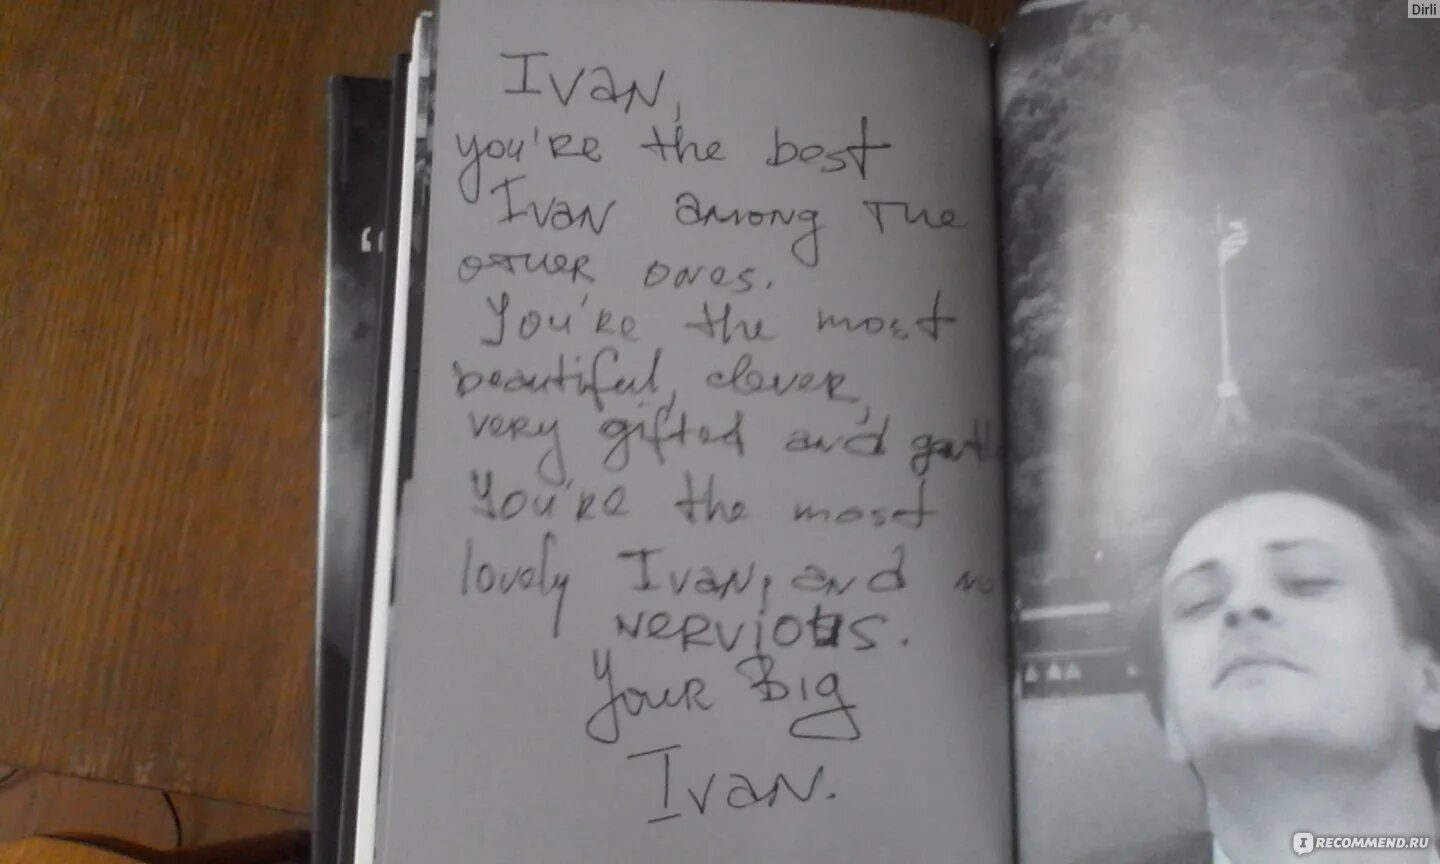 Dirli
Ivan,
you're the best
Ivan among the
other ones.
You're the most
beautiful, clever,
very gifted and
You're the most
lovely Ivan, and
nervious.
Your Big
Ivan.
IRECOMMEND.RU